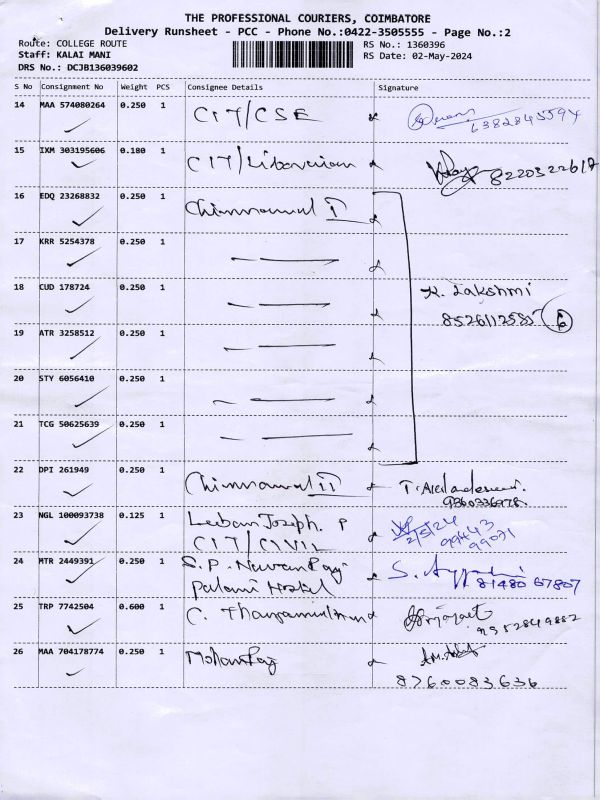 THE PROFESSIONAL COURIERS, COIMBATORE
Delivery Runsheet - PCC - Phone No.:0422-3505555 - Page No.:2
Route: COLLEGE ROUTE
Staff: KALAI MANI
DRS No.: DCJB136039602
RS No.: 1360396
RS Date: 02-May-2024
S No Consignment No Weight PCS Consignee Details Signature
14 MAA 574080264 0.250 1 CIT/CSE 6382845594
15 IXM 303195606 0.180 1 CIT/Librarian
16 EDQ 23268832 0.250 1 Chinnammal I
17 KRR 5254378 0.250 1
18 CUD 178724 0.250 1 K. Lakshmi
8526112585 6
19 ATR 3258512 0.250 1
20 STY 6056410 0.250 1
21 TCG 50625639 0.250 1
22 DPI 261949 0.250 1 Chinnammal II
9360336978
23 NGL 100093738 0.125 1 Leban Joseph. P 2/5/24
CIT/CIVIL 99443
99071
24 MTR 2449391 0.250 1 S.P. 
Palani Hostel 81480 67807
25 TRP 7742504 0.600 1 C. 9952849882
26 MAA 704178774 0.250 1 Mohanraj
8760083636